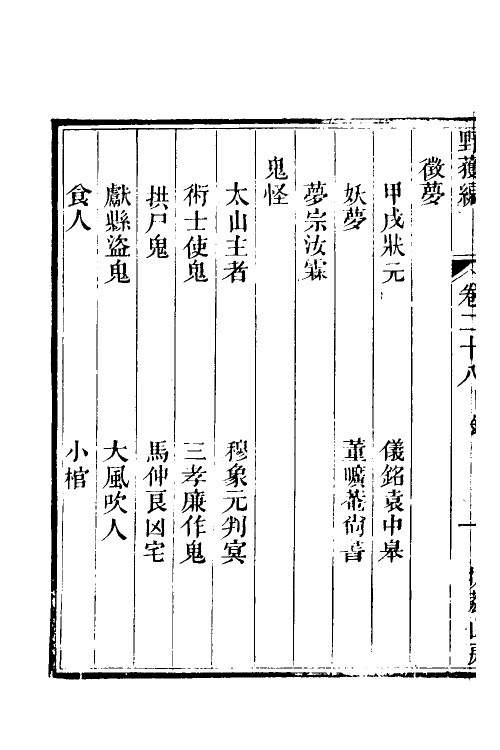 野獲編 卷二十八目錄 一 扶荔山房
徵夢
甲戌狀元 儀銘袁中皋
妖夢 董曠菴尚書
夢宗汝霖
鬼怪
太山主者 穆象元判冥
術士使鬼 三孝廉作鬼
拱尸鬼 馬仲良凶宅
獻縣盜鬼 大風吹人
食人 小棺